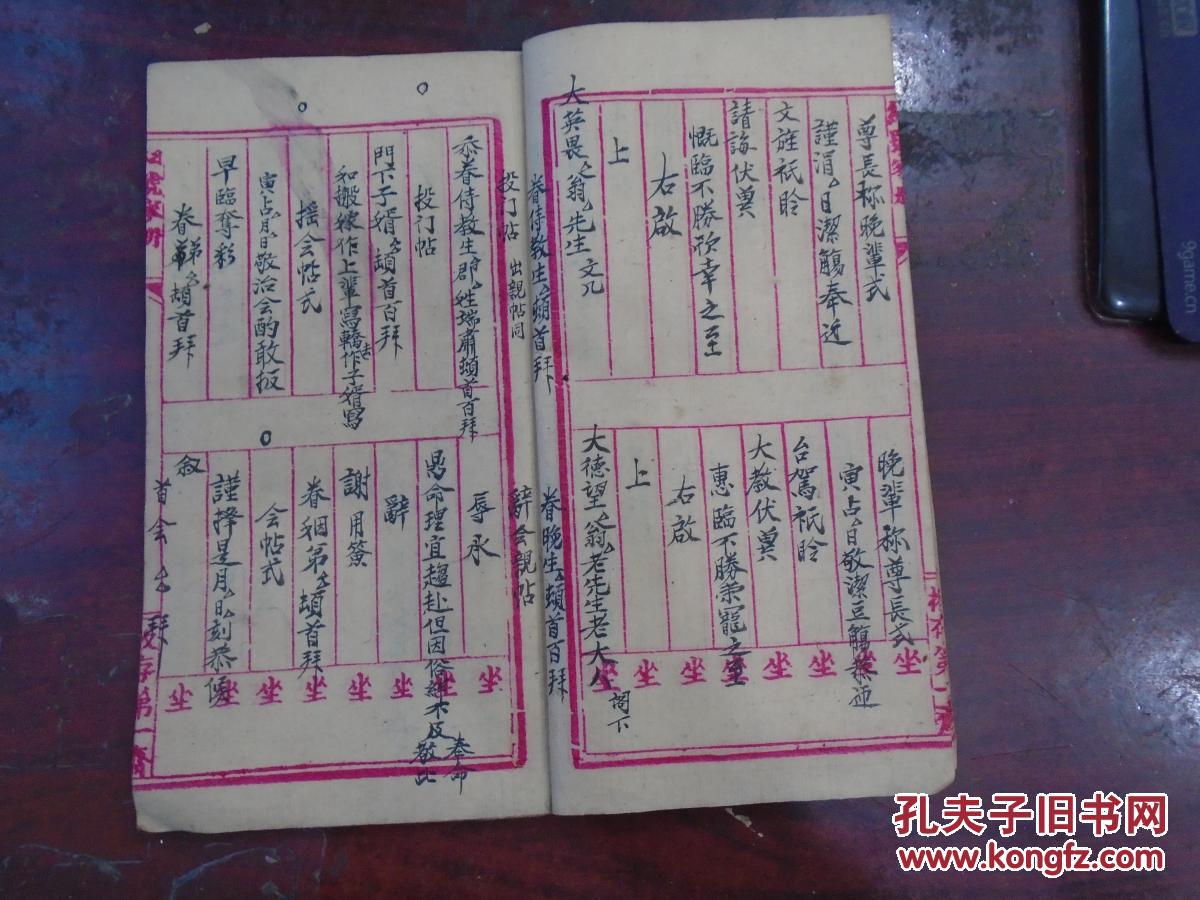 尊長称晚輩式
謹涓 日潔觴奉近
文旌祇聆
請誨伏冀
慨臨不勝欣幸之至
右啟
上
大英畏 翁 先生 文几
眷侍教生 頓首拜
晚輩称尊長式
寅占 日敬潔豆觴恭迎
台駕祇聆
大教伏冀
惠臨不勝榮寵之至
右啟
上
大德望 翁 老先生老大人 閣下
眷晚生 頓首百拜
投门帖 出親帖同
忝眷侍教生郡 姓端肅頓首百拜
投门帖
門下子婿 頓首百拜
和搬嫁作上輩寫轎 作子婿寫
摇会帖式
寅占 月 日敬治会酌敢扳
早臨奪彩
眷弟 頓首拜
辭会親帖
辱承
奉命
敬此
辭
謝用簽
眷姻弟 頓首拜
会帖式
謹擇是月 日 刻恭候
敘
首会 拜
坐 坐 坐 坐 坐 坐 坐 坐
坐 坐 坐 坐 坐 坐 坐 坐
存第一
孔夫子旧书网
www.kongfz.com